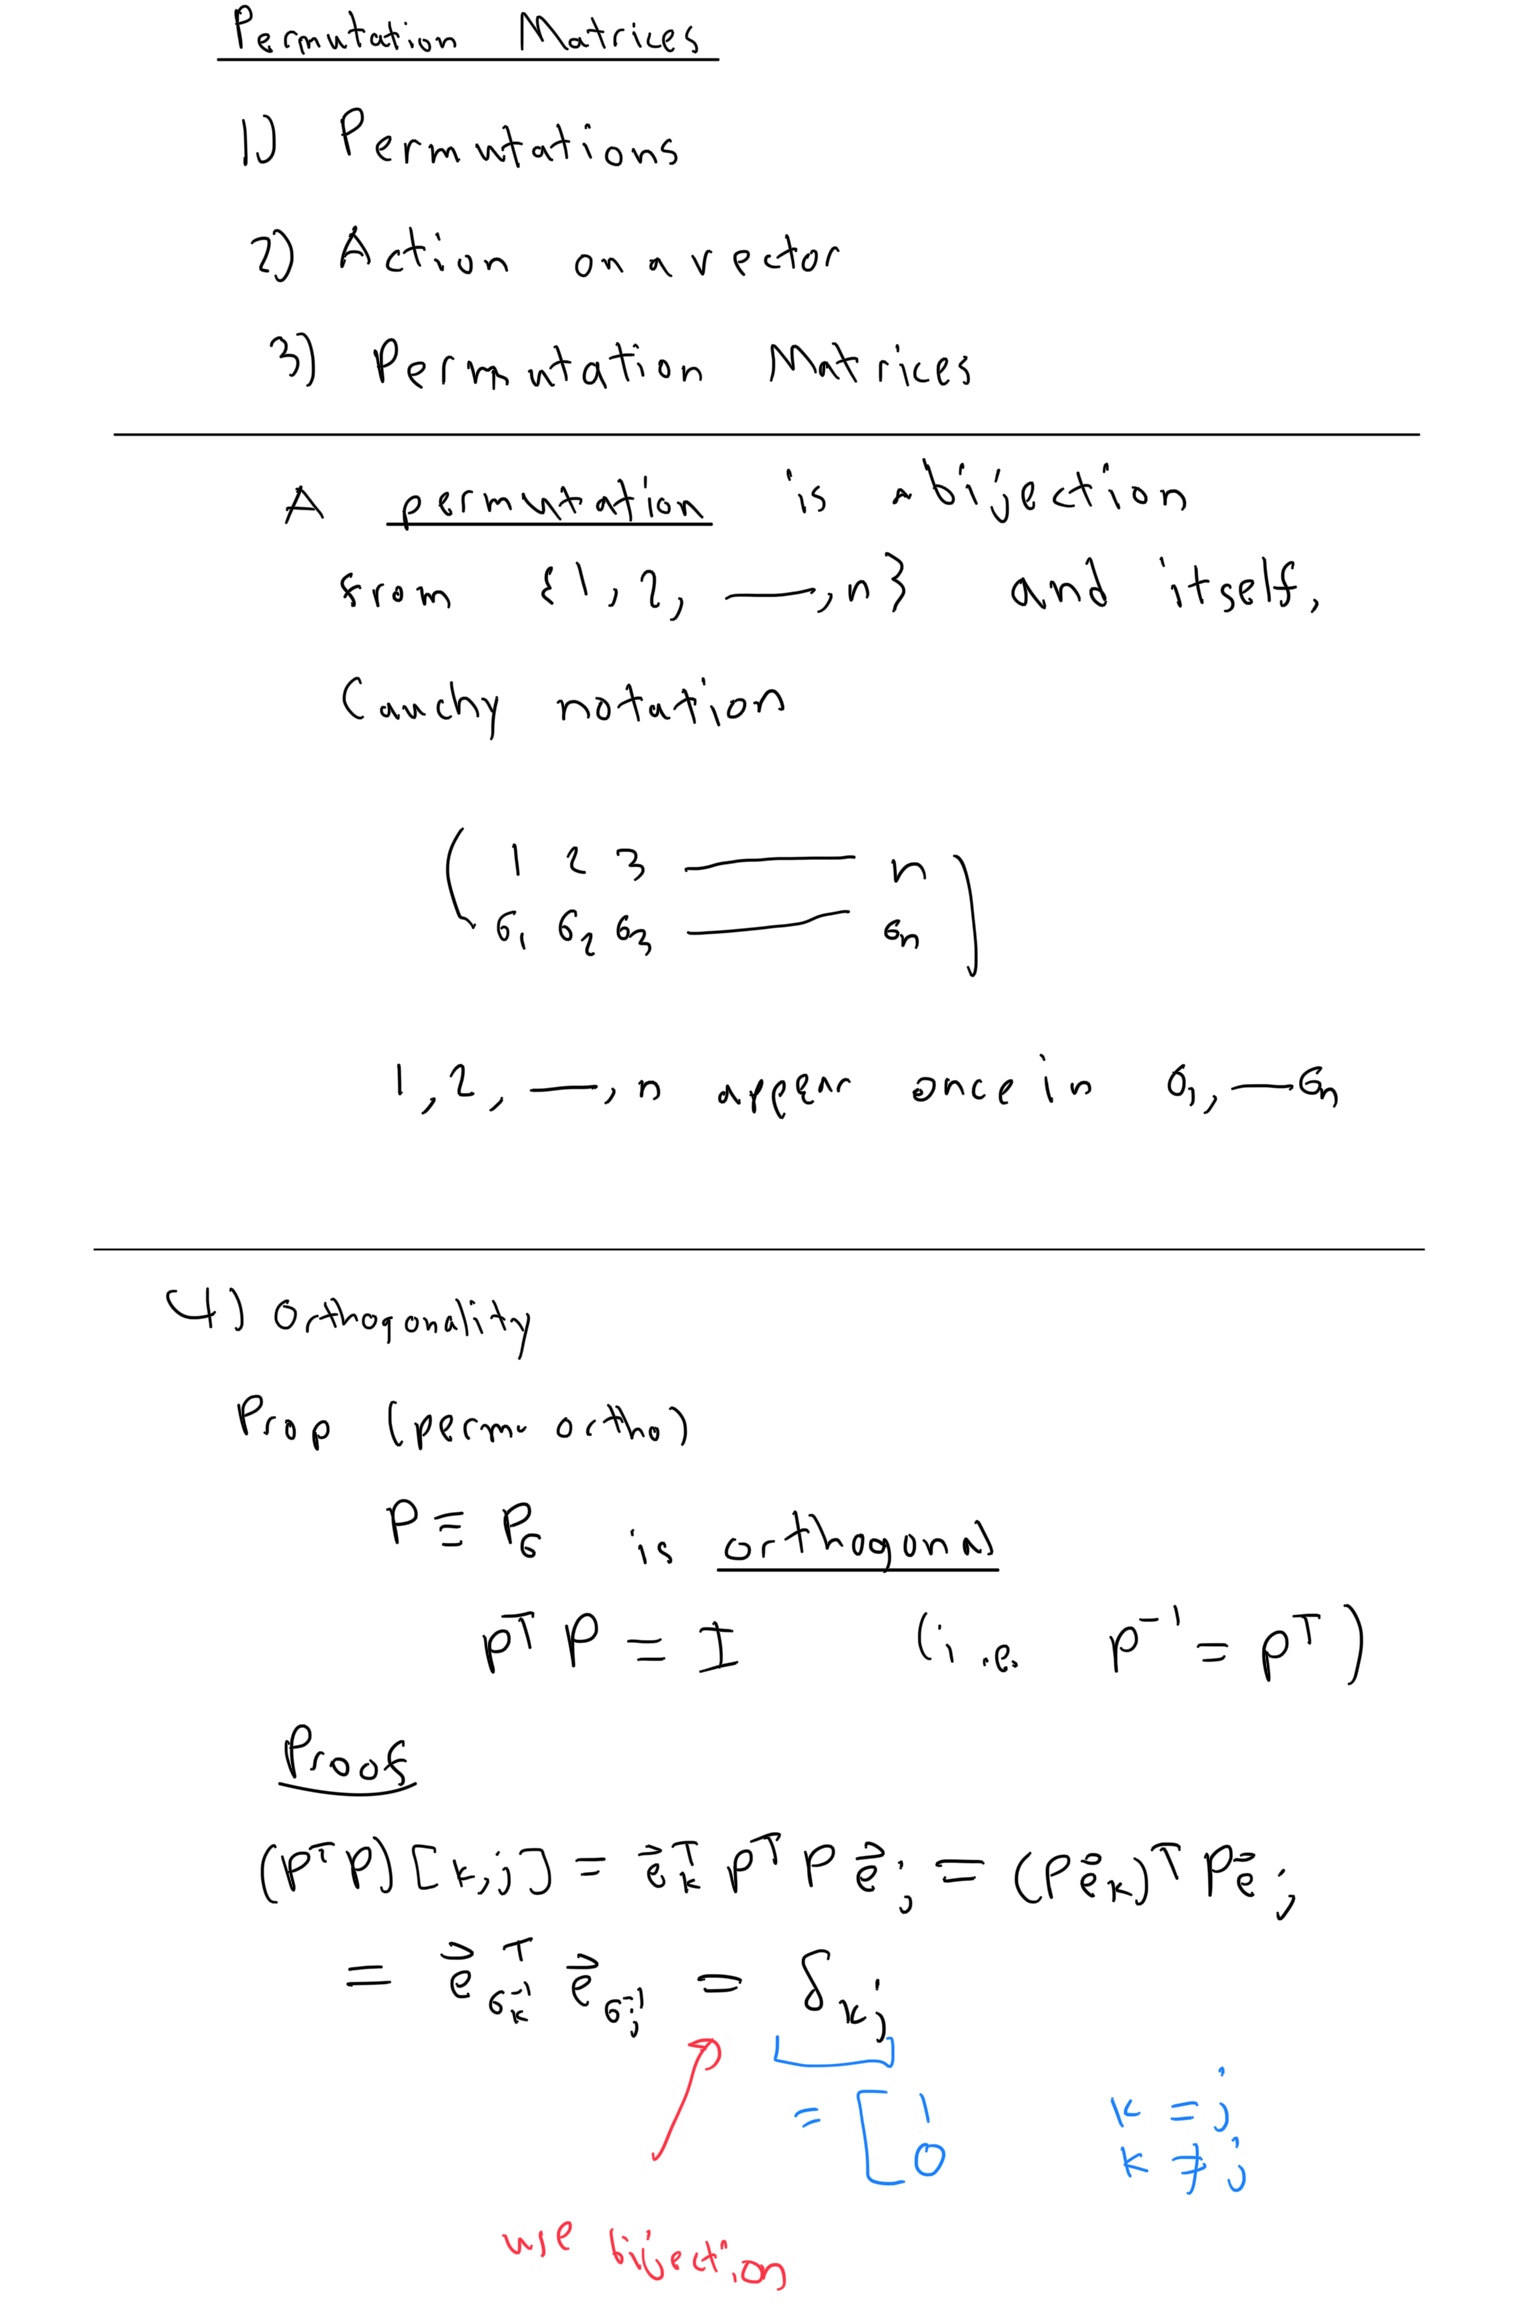 Permutation Matrices
1) Permutations
2) Action on a vector
3) Permutation Matrices
A permutation is a bijection
from {1, 2, —, n} and itself.
Cauchy notation
( 1 2 3 — n )
( σ₁ σ₂ σ₃ — σₙ )
1, 2, —, n appear once in σ₁, — σₙ
4) Orthogonality
Prop (perm. ortho)
P ≡ P_σ is orthogonal
Pᵀ P = I (i.e. P⁻¹ = Pᵀ)
Proof
(PᵀP)[k,j] = e⃗ₖᵀ Pᵀ P e⃗ⱼ = (P e⃗ₖ)ᵀ P e⃗ⱼ
= e⃗_{σₖ⁻¹}ᵀ e⃗_{σⱼ⁻¹} = δₖⱼ
= [ 1 k = j
0 k ≠ j
use bijection